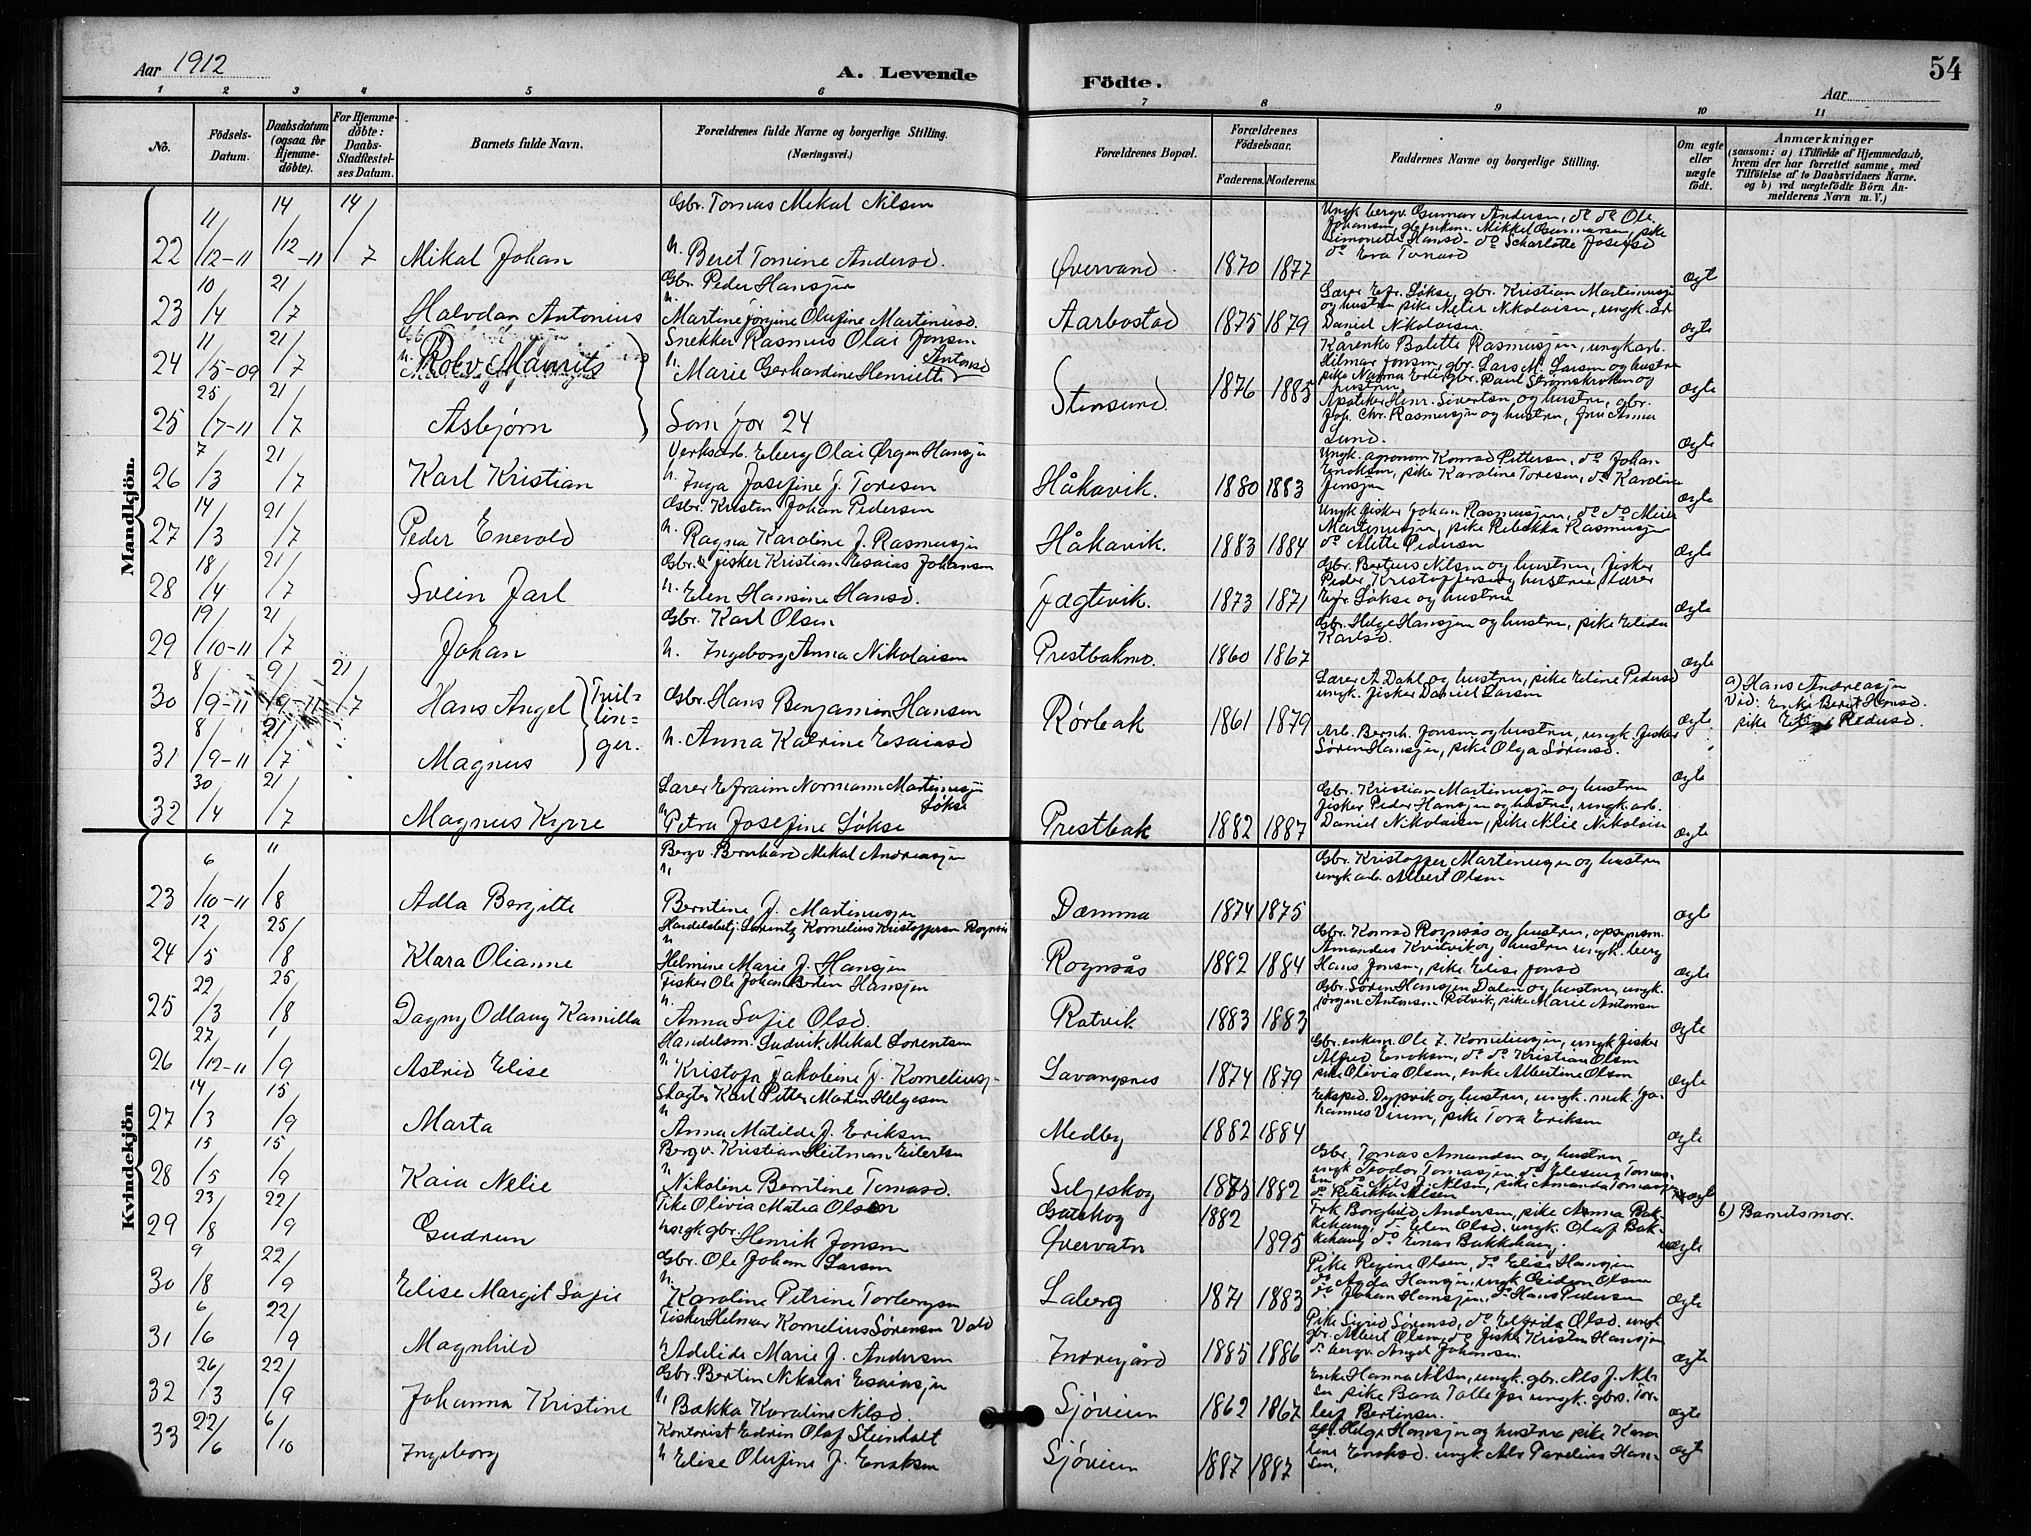 Aar 1912
A. Levende
Födte.
54
Aar
1 2 3 4 5 6 7 8 9 10 11
No.
Födsels-Datum.
Daabsdatum (ogsaa for Hjemme-döbte).
For Hjemme-döbte: Daabs-Stadfæstel-ses Datum.
Barnets fulde Navn.
Forældrenes fulde Navne og borgerlige Stilling. (Næringsvei.)
Forældrenes Bopæl.
Forældrenes Födselsaar.
Faderens. Moderens.
Faddernes Navne og borgerlige Stilling.
Om ægte eller uægte födt.
Anmærkninger
(saasom: a) i Tilfælde af Hjemmedaab, hvem der har forrettet samme, med Tilföielse af to Daabsvidners Navne. og b) ved uægtefödte Börn An-melderens Navn m. V.)
Mandkjön.
22 11/12-11 14/12-11 14/7 Mikal Johan
Gbr. Tomas Mikal Nilsen
h. Beret Tomine Andersd.
Øvervand 1870 1877
Ungk. bergv. Gunnar Andersen, do do Ole
Johansen, gbr enkem. Mikkel Gunnarsen, pike
Simonette Hansd. do Scharlotte Josefsd
do Eva Tomasd
ægte
23 10/4 21/7 Halvdan Antonius
Gbr. Peder Hansjen
h. Martine Jørgine Olufine Martinusd.
Aarbostad 1875 1879
Lærer Efr. Løkse, gbr. Kristian Martinusjen
og hustru pike Nelie Nikolaisen, ungk. arb
Daniel Nikolaisen.
ægte
24 11/5-09 21/7 Rolv Maurits
Snekker Rasmus Olai Jonsen
h. Marie Gerhardine Henriette Antonsd
Stensund. 1876 1885
Karenke Bolette Rasmusjen, ungk arb.
Hilmar Jonsen, gbr. Lars M. Larsen og hustru
pike Nanna Erl. gbr. Paul Strømskroken og
hustru.
ægte
25 25/7-11 21/7 Asbjørn
Som for 24
Apoteker Henr. Sivertsen og hustru, gbr.
Joh. Chr. Rasmusjen og hustru, fru Anna
Lund.
ægte
26 7/3 21/7 Karl Kristian
Verksarb. Eberg Olai Ørgen Hansjen
h. Inga Josefine f. Toresen
Håkavik. 1880 1883
Ungk. agronom Konrad Pettersen, do Johan
Enoksen, pike Karoline Toresen, do Karoline
Jensjen
ægte
27 14/3 21/7 Peder Enevold
Gbr. Kristen Johan Pedersen
h. Ragna Karoline f. Rasmusjen
Håkavik. 1883 1884
Ungk fisker Johan Rasmusjen, do do Meier
Martinusjen, pike Rebekka Rasmusjen
do Alette Pedersen
ægte
28 18/4 21/7 Svein Jarl
Gbr. & fisker Kristian Esaias Johansen
h. Elen Hansine Hansd.
Jægtevik. 1873 1871
Gbr. Berteus Nilsen og hustru, fisker
Peder Kristoffersen og hustru, lærer
Efr. Løkse og hustru
ægte
29 19/10-11 21/7 Johan
Gbr. Karl Olsen
h. Ingeborg Anna Nikolaisen
Prestbakmo. 1860 1867
Gbr. Helge Hansjen og hustru, pike Elida
Karlsd.
ægte
30 8/9-11 9/9-11 21/7 Hans Angel
Tvillinger.
Gbr. Hans Benjamin Hansen
h. Anna Katrine Esaiasd
Rørbak 1861 1879
Lærer A. Dahl og hustru, pike Eline Pedersd
ungk. fisker Daniel Larsen
ægte
a) Hans Andreasjen
Vid: Enke Beret Hansd.
pike Eline Pedersd.
31 8/9-11 21/7 Magnus
Arb. Bernh. Jonsen og hustru, ungk. fisker
Søren Hansjen, pike Olga Sørensd.
ægte
32 30/4 21/7 Magnus Kyrre
Lærer Efraim Normann Martinusjen
Løkse
h. Petra Josefine Løkse
Prestbak 1882 1887
Gbr. Kristian Martinusjen og hustru
fisker Peder Hansjen og hustru, ungk. arb.
Daniel Nikolaisen, pike Nelie Nikolaise
ægte
Kvindekjön
23 6/10-11 11/8 Adla Bergitte
Bergv. Bernhard Mikal Andreasjen
h. Berntine f. Martinusjen
Dæmma 1874 1875
Gbr. Kristoffer Martinusjen og hustru
ungk arb. Albert Olsen
ægte
24 12/5 25/8 Klara Olianne
Handelsbetj. Lorentz Kornelius Kristoffersen Rognsås
h Helmine Marie f. Hansjen
Rognsås 1882 1884
Gbr. Konrad Rognsås og hustru, opsynsm.
Amandus Kvitvik og hustru ungk. berg
Hans Jonsen, pike Elise Jonsd
ægte
25 22/3 25/8 Dagny Odlaug Kamilla
Fisker Ole Johan Bertin Hansjen
h. Anna Sofie Olsd.
Ratvik 1883 1883
Gbr. Søren Hansjen Dalen og hustru, ungk.
Jørgen Antonsen Rotvik, pike Marie Antonsen
ægte
26 27/12-11 1/9 Astrid Elise
Handelsm. Ludvik Mikal Lorentsen
h. Kristofa Jakobine f. Korneliusj.
Lavangsnes 1874 1879
Gbr. enkem. Ole Z. Korneliusjen, ungk. fisker
Alfred Enoksen, do do Kristian Olsen
pike Olivia Olsen, enke Albertine Olsen
ægte
27 14/3 15/9 Marta
Slagter Karl Petter Martin Helgesen
h Anna Matilde f. Eriksen
Medby 1882 1884
Eksped. Dypvik og hustru, ungk. mek. Jo-
hannes Vium, pike Tora Eriksen
ægte
28 15/5 15/9 Kaia Nelie
Bergv. Kristian Heitman Eilertsen
h Nikoline Berntine Tomasd.
Seljeskog 1875 1882
Gbr. Tomas Amundsen og hustru
ungk Teodor Tomasjen, do Eliseus Tomas-
sen, do Nils J. Nilsen, pike Amanda Tomasjen
do Rebekka Nilsen
ægte
29 23/8 22/9 Gudrun
Pike Olivia Matea Olsen
ungk gbr. Henrik Jonsen
Gateskog 1882
Øvervatn 1895
Frk Borghild Andersen, pike Anna Bak-
kehaug, do Elen Olsd. ungk. Olaf Bak-
kehaug do Einar Bakkehaug.
uægte
b) Barnets mor.
30 9/8 22/9 Elise Margit Sofie
Gbr. Ole Johan Larsen
h. Karoline Petrine Torbergsen
Laberg 1871 1883
Pike Regine Olsen, do Elise Hansjen
do Agda Hansjen, ungk Gideon Olsen
do Johan Hansjen, do Hans Pedersen
ægte
31 6/6 22/9 Magnhild
Fisker Helmer Kornelius Sørensen Vold
h Adelide Marie f. Andersen
Indregård 1885 1886
Pike Sigrid Sørensd, do Elfrida Olsd. ungk
gbr. Albert Olsen, do fisker Kristen Hansjen
do bergv. Angel Johansen.
ægte
32 26/3 22/9 Johanna Kristine
Gbr. Bertin Nikolai Esaiasjen
h. Bakka Karoline Nilsd.
Sjøveien 1862 1867
Enke Hanna Nilsen, ungk. gbr. Nils J. Nil-
sen, pike Bara Tollefsen ungk. gbrs. Tor-
leif Bertinsen.
ægte
33 22/6 6/10 Ingeborg
Kontorist Edvin Olaf Steinholt
h Elise Olufine f. Enoksen
Sjøveien 1887 1887
Gbr. Helge Hansjen og hustru pike Karo
line Enoksd. ungk. Alv Parelius Han-
sen.
ægte